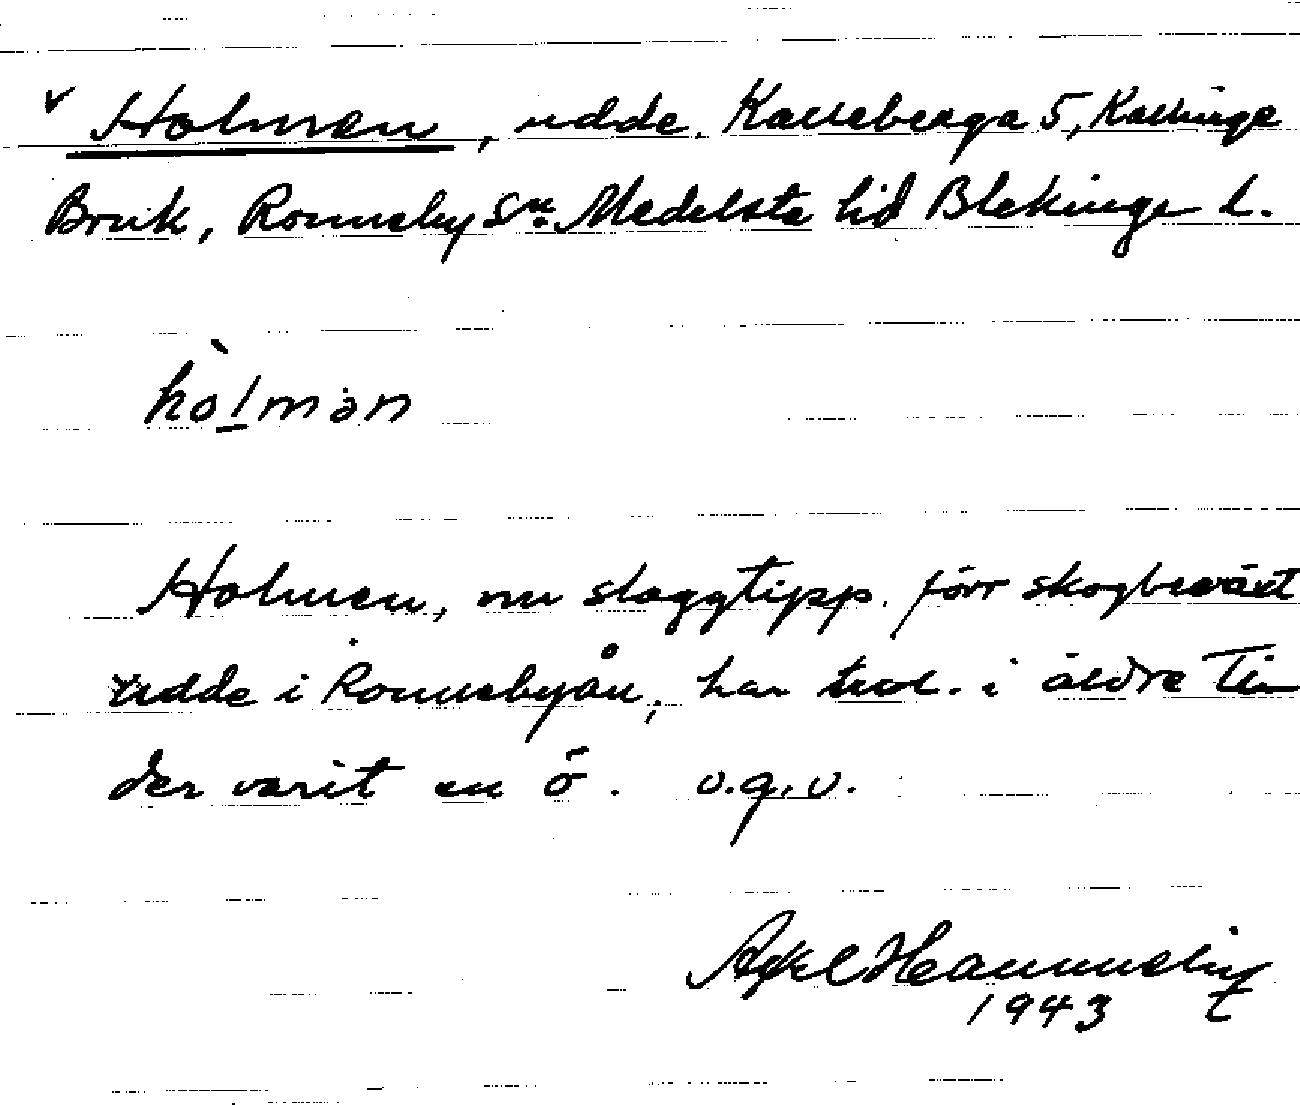 v Holmen, udde. Kalleberga 5, Kallinge
Bruk, Ronneby Sn. Medelsta hd Blekinge l.
hòlmən
Holmen, nu slaggtipp. förr skogbeväxt
udde i Ronnebyån, har trol. i äldre Tin
der varit en ö. o.q.v.
Axel
1943